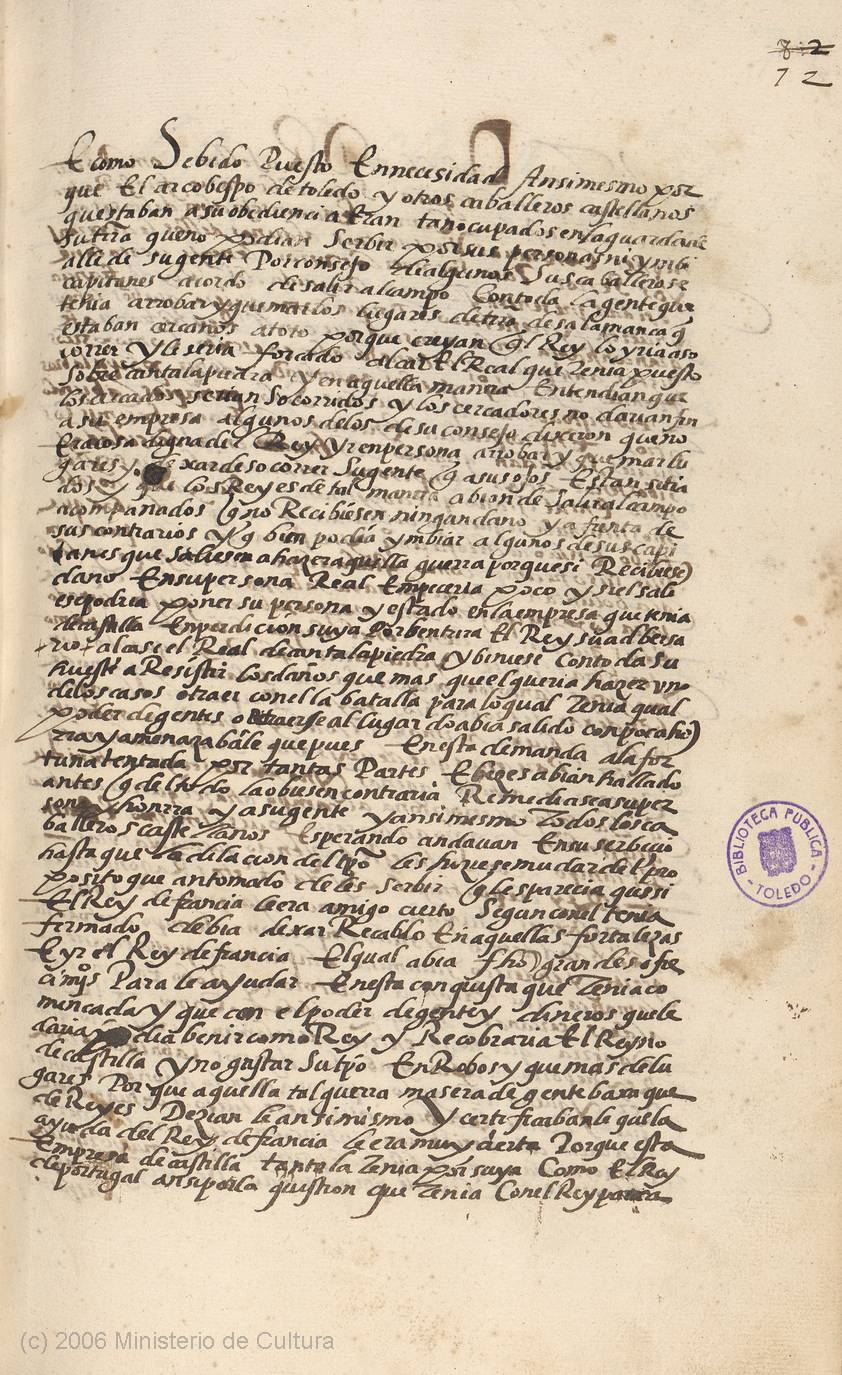 82
72
E como Debido Puesto Ennecesidad Ansimesmo por
que El arcobespo de toledo y otros caballeros castellanos
questaban asuobediencia Eran tanocupados enlaguardade
sutrra queno podian serbir porsus personas ni ymbi
alle de sugente Porconsejo dealgunos Suscaballerose
capitanes acordo desalir alcampo Contoda lagenteque
tenia arrobar yquemarlos lugares detrra desalamanca q
estaban arcanos atoro porque creyan q el Rey lo yria aso
correr Yleseria forcado alcar El Real que Tenia puesto
sobre cantalapiedra yenaquella manera Entendian que
loscercados serian Socorridos y los cercadores no davan fin
a su empresa algunos delos desuconsejo dixeron queno
Eracosa dignade Rey Yrenpersona arrobar y quemarlu
gares y dexar desocorrer Sugente q asusojos Estan sitia
dos y que losReyes de tal manera abian de Saliralcampo
acompañados q no Recibiesen ningun dano ya frenta de
sus contrarios y q bien podia ymbiar algunos desus capi
tanes que saliesen ahazer aquella guerra porquesi Recibiese
dano Ensupersona Real Empeceria poco y si el sali
esepodria poner su persona y estado enlaempresa que tenia
decastilla Enperdicion suya Porbentura El Rey su adbersa
rio alcasi el Real decantalapiedra y biniese Contoda su
hueste a Resistir losdaños que mas que elqueria hazer vno
delos casos otraer conel la batalla para loqual Tenia qual
poder degentes o Retraerse al lugar do abia salido conpocaho
rra y amenazabale quepues Enesta demanda ala for
tuna tentada por tantas Partes E beges abian hallado
antes q del todo la obiesen contraria Remediase asuper
sona y honrra ya sugente yansimesmo todos losca
balleros castellanos Esperando andauan Ensu serbicio
hasta que la dilacion del tpo les hiziese mudar del pro
posito que antomado deles serbir q lesparecia quesi
El Rey de francia leera amigo cierto Segun conel tenia
firmado debia dexar Recabdo En aquellas fortalezas
E yr el Rey defrancia Elqual abia fho grandes ofre
cimos Para le ayudar Enesta conquista que Tenia co
mencada y que con el poder degente y dineros quele
daria podia benir como Rey y Recobraria El Reyno
decastilla yno gastar Su tpo EnRobos y quemas delu
gares Porque aquella tal guerra masera de gente baxa que
de Reyes Dezian leansimismo y certificabanle quela
ayuda del Rey de francia le era muy cierta Porque esta
Empresa de castilla tanto la Tenia por suya Como El Rey
deportugal ansi porla question que Tenia Conel Rey para
BIBLIOTECA PUBLICA
- TOLEDO -
(c) 2006 Ministerio de Cultura